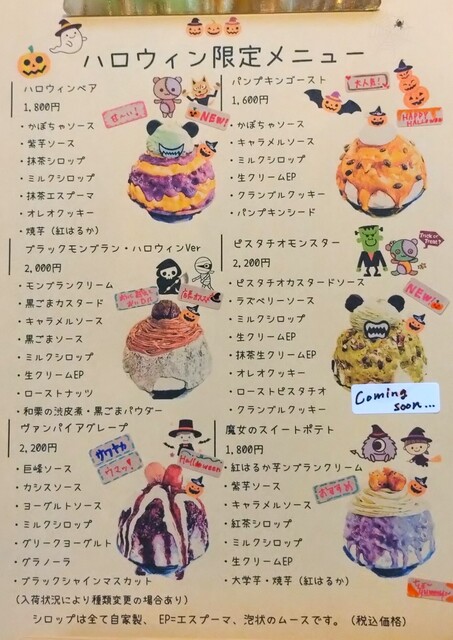 ハロウィン限定メニュー
ハロウィンベア
1,800円
・かぼちゃソース
・紫芋ソース
・抹茶シロップ
・ミルクシロップ
・抹茶エスプーマ
・オレオクッキー
・焼芋（紅はるか）
NEW!
パンプキンゴースト
1,600円
・かぼちゃソース
・キャラメルソース
・ミルクシロップ
・生クリームEP
・クランブルクッキー
・パンプキンシード
大人気!
HAPPY HALLOWEEN
ブラックモンブラン・ハロウィンVer
2,000円
・モンブランクリーム
・黒ごまカスタード
・キャラメルソース
・黒ごまソース
・ミルクシロップ
・生クリームEP
・ローストナッツ
・和栗の渋皮煮・黒ごまパウダー
ピスタチオモンスター
2,200円
・ピスタチオカスタードソース
・ラズベリーソース
・ミルクシロップ
・生クリームEP
・抹茶生クリームEP
・オレオクッキー
・ローストピスタチオ
・クランブルクッキー
Trick or Treat?
NEW!
Coming
soon...
ヴァンパイアグレープ
2,200円
・巨峰ソース
・カシスソース
・ヨーグルトソース
・ミルクシロップ
・グリークヨーグルト
・グラノーラ
・ブラックシャインマスカット
（入荷状況により種類変更の場合あり）
サワヤカ
ウマッ!
Halloween
魔女のスイートポテト
1,800円
・紅はるか芋ンブランクリーム
・紫芋ソース
・キャラメルソース
・紅茶シロップ
・ミルクシロップ
・生クリームEP
・大学芋・焼芋（紅はるか）
おすすめ
シロップは全て自家製、EP=エスプーマ、泡状のムースです。（税込価格）